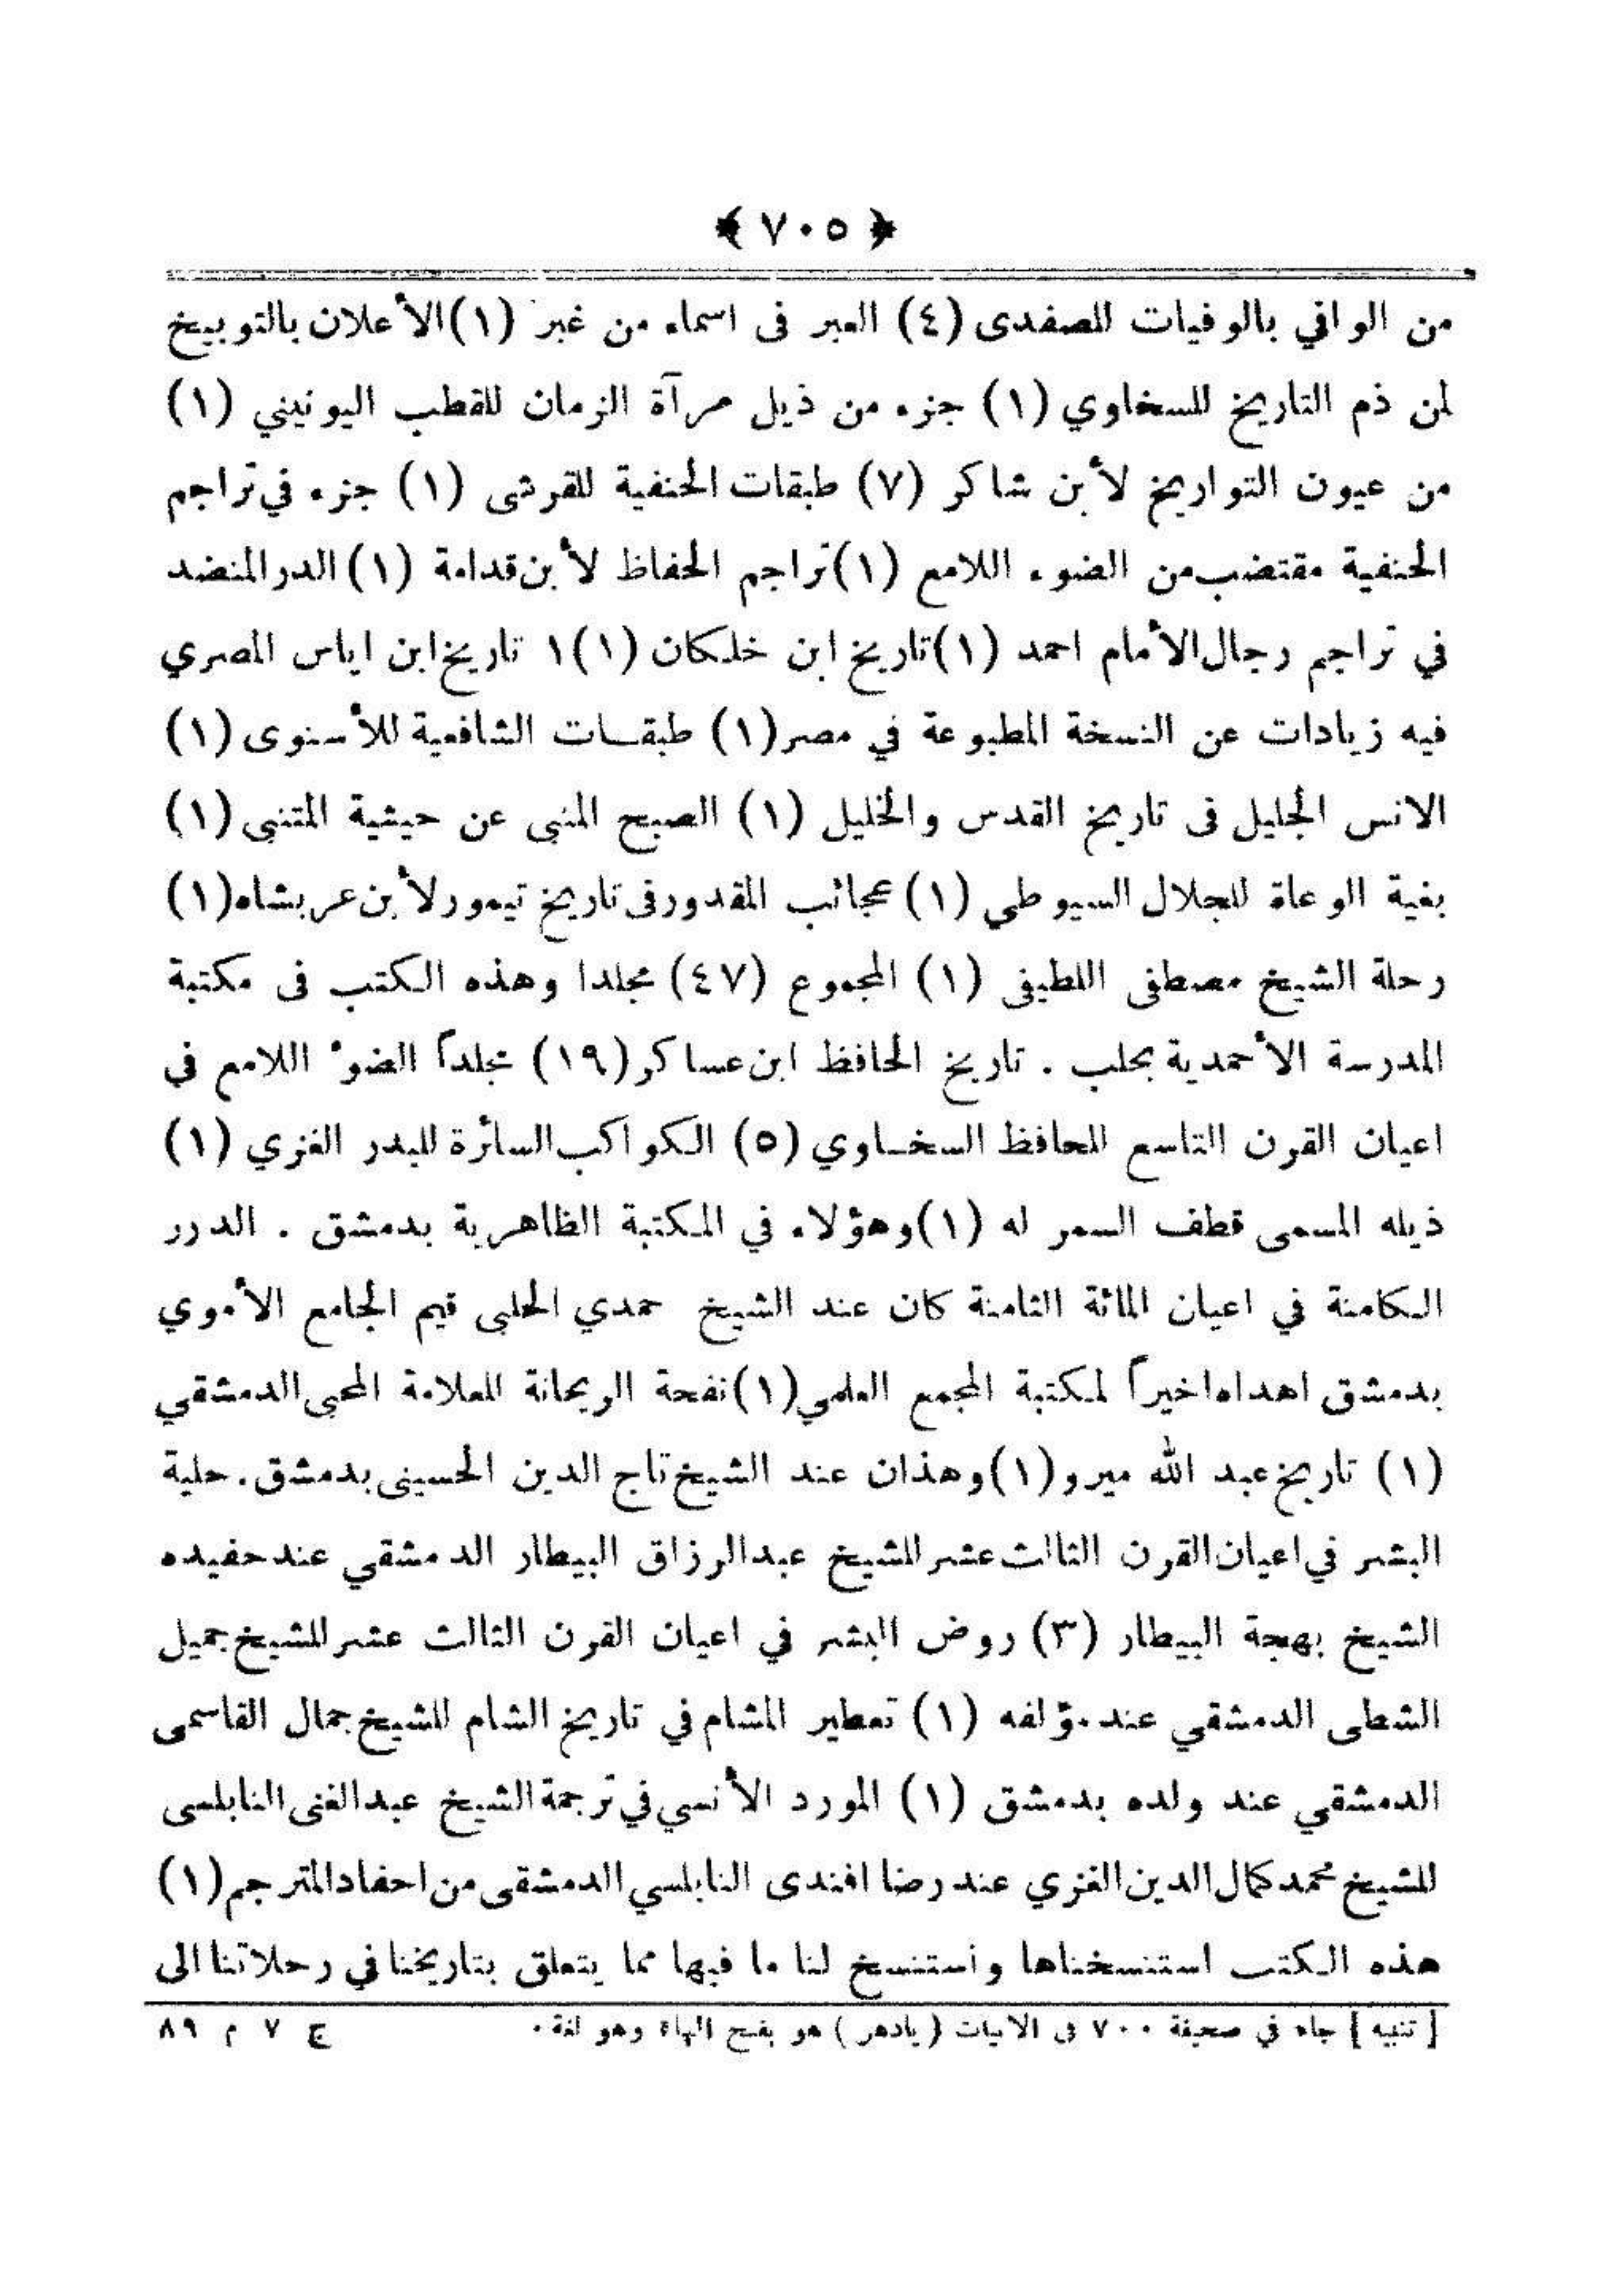 ﴿ ٧٠٥ ﴾
من الوافي بالوفيات للصفدى (٤) العبر فى اسماء من غبر (١) الأعلان بالتوبيخ
لمن ذم التاريخ للسخاوي (١) جزء من ذيل مرآة الزمان للقطب اليونيني (١)
من عيون التواريخ لأبن شاكر (٧) طبقات الحنفية للقرشى (١) جزء في تراجم
الحنفية مقتضب من الضوء اللامع (١) تراجم الحفاظ لأبن قدامة (١) الدر المنضد
في تراجم رجال الأمام احمد (١) تاريخ ابن خلكان (١) ١ تاريخ ابن اياس المصري
فيه زيادات عن النسخة المطبوعة في مصر (١) طبقات الشافعية للأسنوى (١)
الانس الجليل فى تاريخ القدس والخليل (١) الصبح المنبى عن حيثية المتنبى (١)
بغية الوعاة للجلال السيوطي (١) عجائب المقدور فى تاريخ تيمور لأبن عربشاه (١)
رحلة الشيخ مصطفى اللطيفى (١) المجموع (٤٧) مجلدا وهذه الكتب فى مكتبة
المدرسة الأحمدية بحلب . تاريخ الحافظ ابن عساكر (١٩) مجلداً الضوء اللامع في
اعيان القرن التاسع للحافظ السخاوي (٥) الكواكب السائرة للبدر الغزي (١)
ذيله المسمى قطف السمر له (١) وهؤلاء في المكتبة الظاهرية بدمشق . الدرر
الكامنة في اعيان المائة الثامنة كان عند الشيخ حمدي الحلبى قيم الجامع الأموي
بدمشق اهداه اخيراً لمكتبة المجمع العلمي (١) نفحة الريحانة للعلامة المحبى الدمشقي
(١) تاريخ عبد الله ميرو (١) وهذان عند الشيخ تاج الدين الحسينى بدمشق . حلية
البشر في اعيان القرن الثالث عشر للشيخ عبد الرزاق البيطار الدمشقي عند حفيده
الشيخ بهجة البيطار (٣) روض البشر في اعيان القرن الثالث عشر للشيخ جميل
الشطى الدمشقي عند مؤلفه (١) تعطير المشام في تاريخ الشام للشيخ جمال القاسمى
الدمشقي عند ولده بدمشق (١) المورد الأنسي في ترجمة الشيخ عبد الغنى النابلسى
للشيخ محمد كمال الدين الغزي عند رضا افندى النابلسي الدمشقى من احفاد المترجم (١)
هذه الكتب استنسخناها واستنسخ لنا ما فيها مما يتعلق بتاريخنا في رحلاتنا الى
[ تنبيه ] جاء في صحيفة ٧٠٠ فى الابيات ( يادهر ) هو بفتح الهاء وهو لغة . ج ٧ م ٨٩